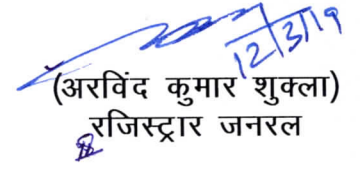 12/3/19
(अरविंद कुमार शुक्ला)
रजिस्ट्रार जनरल